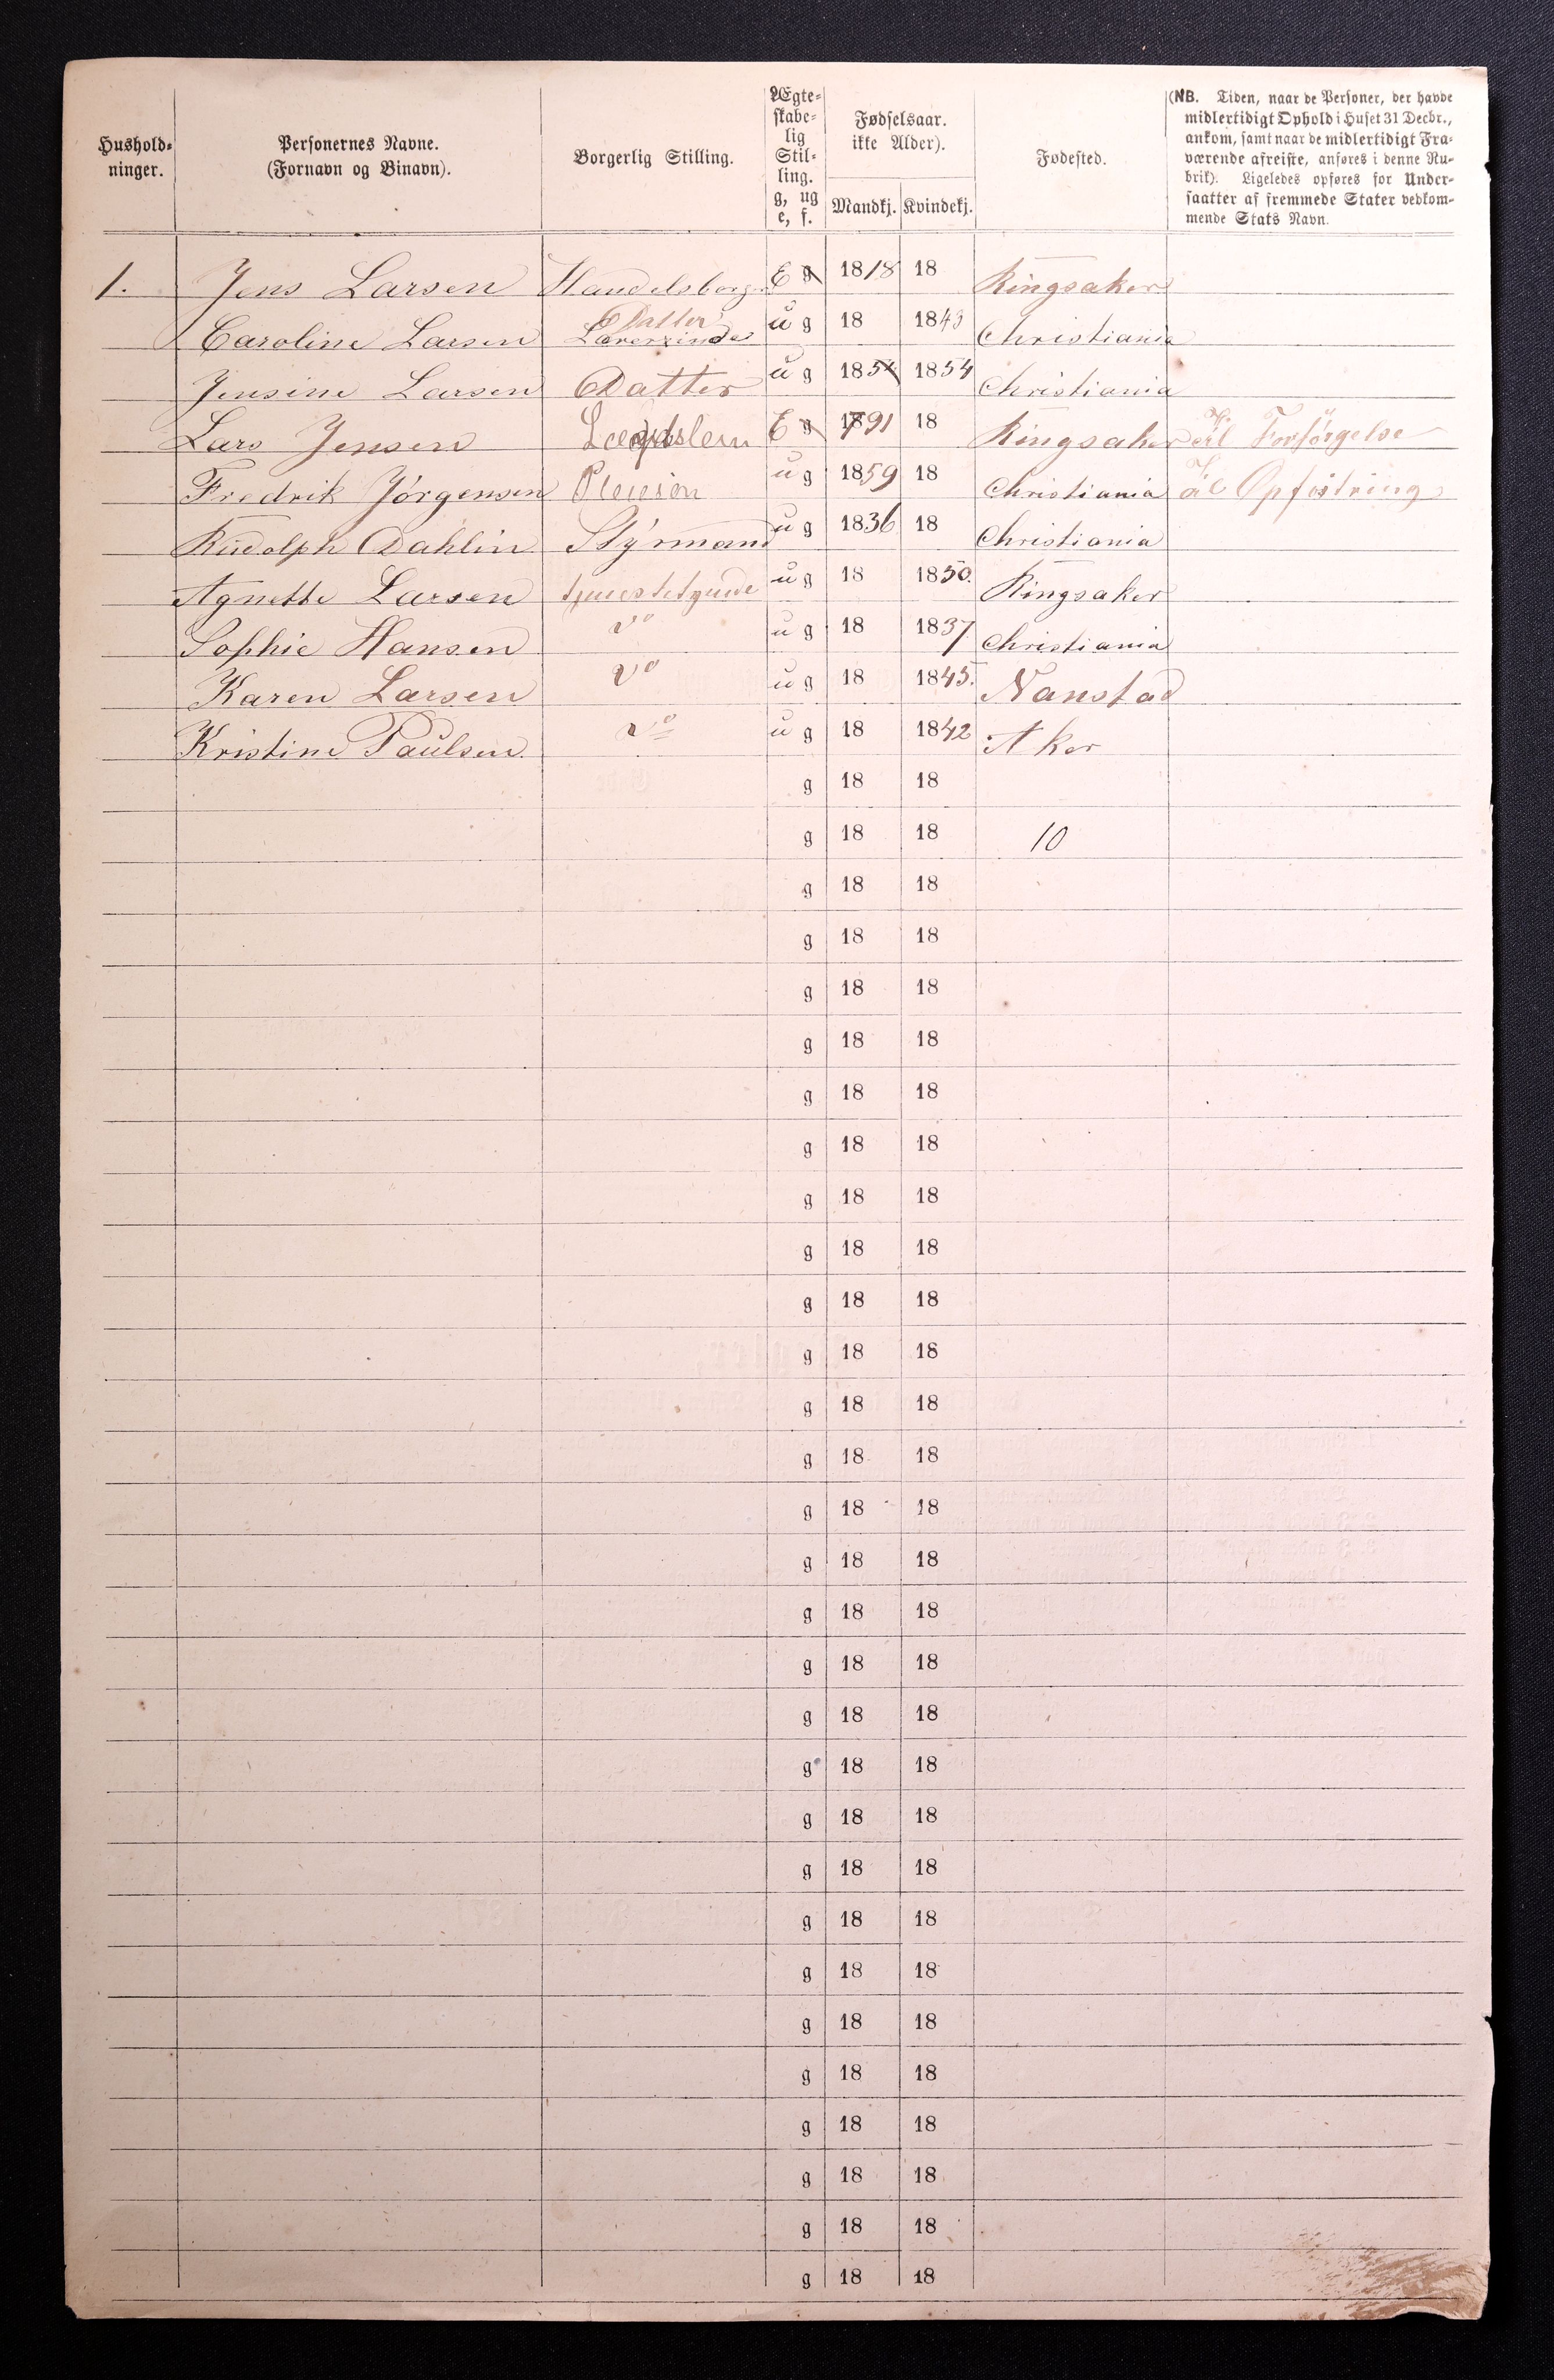 Hushold-
ninger.
Personernes Navne.
(Fornavn og Binavn).
Borgerlig Stilling.
Ægte-
skabe-
lig
Stil-
ling.
g, ug
e, f.
Fødselsaar.
ikke Alder).
Mandkj. Kvindekj.
Fødested.
(NB. Tiden, naar de Personer, der havde
midlertidigt Ophold i Huset 31 Decbr.,
ankom, samt naar de midlertidigt Fra-
værende afreiste, anføres i denne Ru-
brik). Ligeledes opføres for Under-
saatter af fremmede Stater vedkom-
mende Stats Navn.
1. Jens Larsen Handelsborg E g 1818 18 Ringsaker
Datter
Caroline Larsen Lærerinde u g 18 1843 Christiania
Jensine Larsen Datter u g 1854 1854 Christiania
Lars Jensen E g 1791 18 Ringsaker til Forsørgelse
Fredrik Jörgensen Pleiesön u g 1859 18 Christiania til Opfostring
Rudolph Dahlin Styrmand u g 1836 18 Christiania
Agnethe Larsen tjenestetyende u g 18 1850. Ringsaker
Sophie Hansen do u g 18 1837 Christiania
Karen Larsen do u g 18 1845. Nanstad
Kristine Paulsen do u g 18 1842 Aker
g 18 18
g 18 18 10
g 18 18
g 18 18
g 18 18
g 18 18
g 18 18
g 18 18
g 18 18
g 18 18
g 18 18
g 18 18
g 18 18
g 18 18
g 18 18
g 18 18
g 18 18
g 18 18
g 18 18
g 18 18
g 18 18
g 18 18
g 18 18
g 18 18
g 18 18
g 18 18
g 18 18
g 18 18
g 18 18
g 18 18